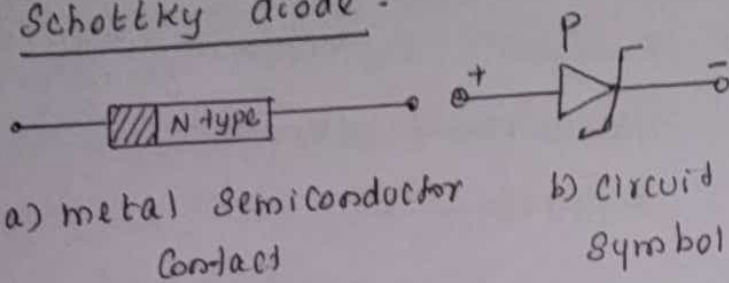 Schottky diode.
P
N-type
+ -
a) metal semiconductor
contact
b) circuid
symbol